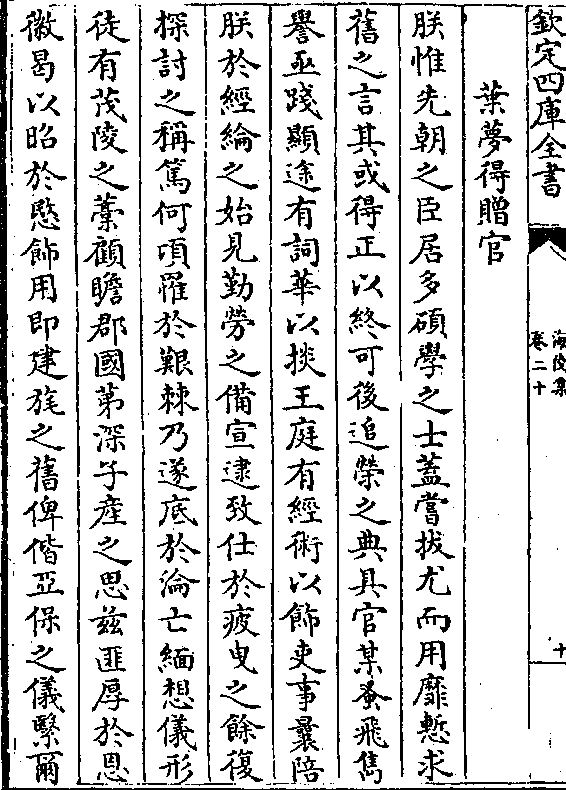 欽定四庫全書
海陵集
卷二十
十
葉夢得贈官
朕惟先朝之臣居多碩學之士蓋嘗拔尤而用靡慙求
舊之言其或得正以終可後追榮之典具官某蚤飛雋
譽亟踐顯途有詞華以掞王庭有經術以飾吏事曩陪
朕於經綸之始見勤勞之備宣逮致仕於疲曳之餘復
探討之稱篤何頃罹於艱棘乃遂底於淪亡緬想儀形
徒有茂陵之藁顧瞻郡國第深子產之思兹匪厚於恩
徽曷以昭於愍飾用即建旄之舊俾偕亞保之儀緊爾